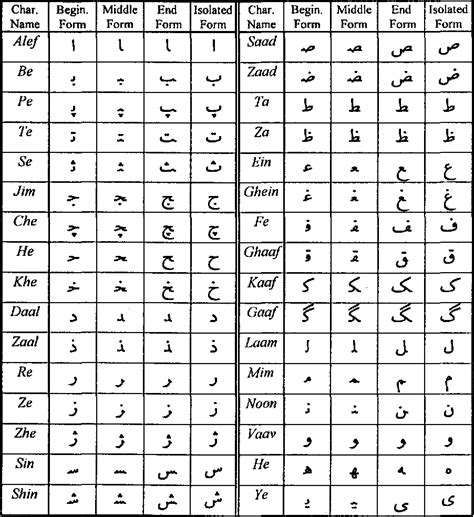 Char. Name Begin. Form Middle Form End Form Isolated Form Char. Name Begin. Form Middle Form End Form Isolated Form
Alef ا ا ا ا Saad صـ ـصـ ـص ص
Be بـ ـبـ ـب ب Zaad ضـ ـضـ ـض ض
Pe پـ ـپـ ـپ پ Ta ط ط ط ط
Te تـ ـتـ ـت ت Za ظ ظ ظ ظ
Se ثـ ـثـ ـث ث Ein عـ ـعـ ـع ع
Jim جـ ـجـ ـج ج Ghein غـ ـغـ ـغ غ
Che چـ ـچـ ـچ چ Fe فـ ـفـ ـف ف
He حـ ـحـ ـح ح Ghaaf قـ ـقـ ـق ق
Khe خـ ـخـ ـخ خ Kaaf کـ ـکـ ـک ک
Daal د ـد ـد د Gaaf گـ ـگـ ـگ گ
Zaal ذ ـذ ـذ ذ Laam لـ ـلـ ـل ل
Re ر ر ر ر Mim مـ ـمـ ـم م
Ze ز ز ز ز Noon نـ ـنـ ـن ن
Zhe ژ ژ ژ ژ Vaav و و و و
Sin سـ ـسـ ـس س He هـ ـهـ ـه ه
Shin شـ ـشـ ـش ش Ye یـ ـیـ ـی ی